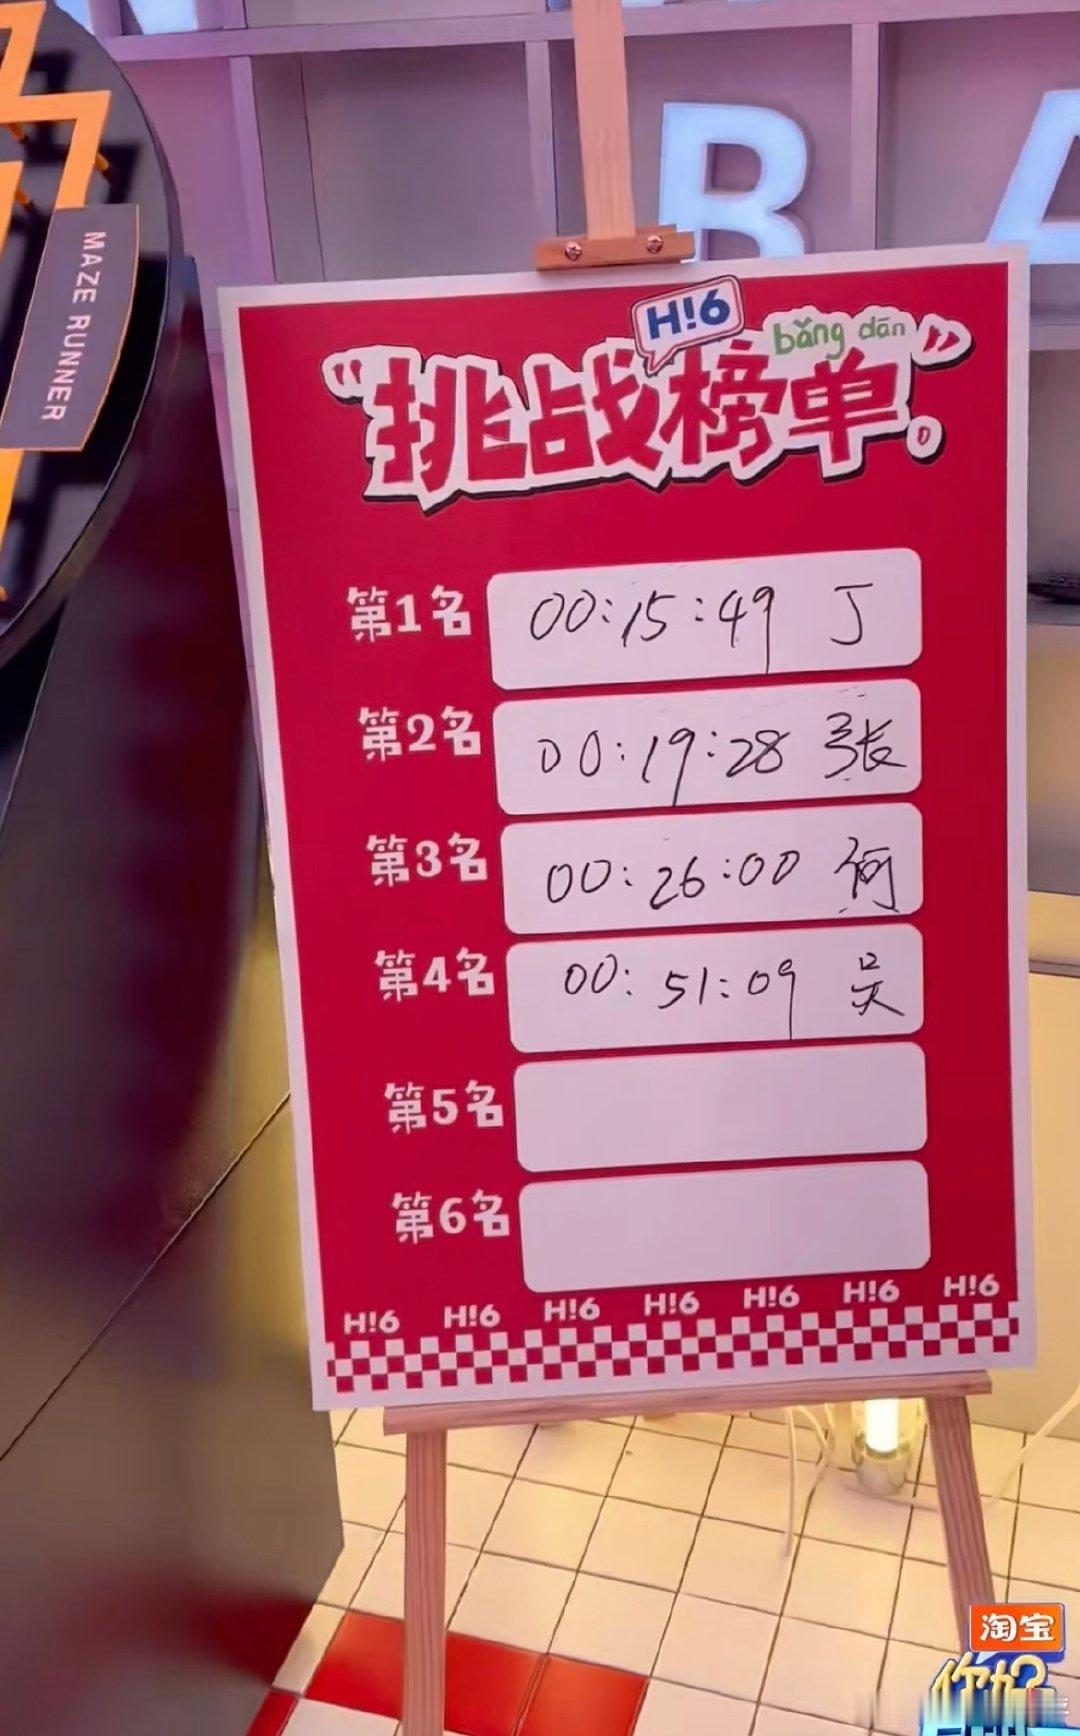 BA
MAZE RUNNER
H!6
bǎng dān
“挑战榜单”。
第1名 00:15:49 丁
第2名 00:19:28 张
第3名 00:26:00 何
第4名 00:51:09 吴
第5名
第6名
H!6 H!6 H!6 H!6 H!6 H!6 H!6
淘宝